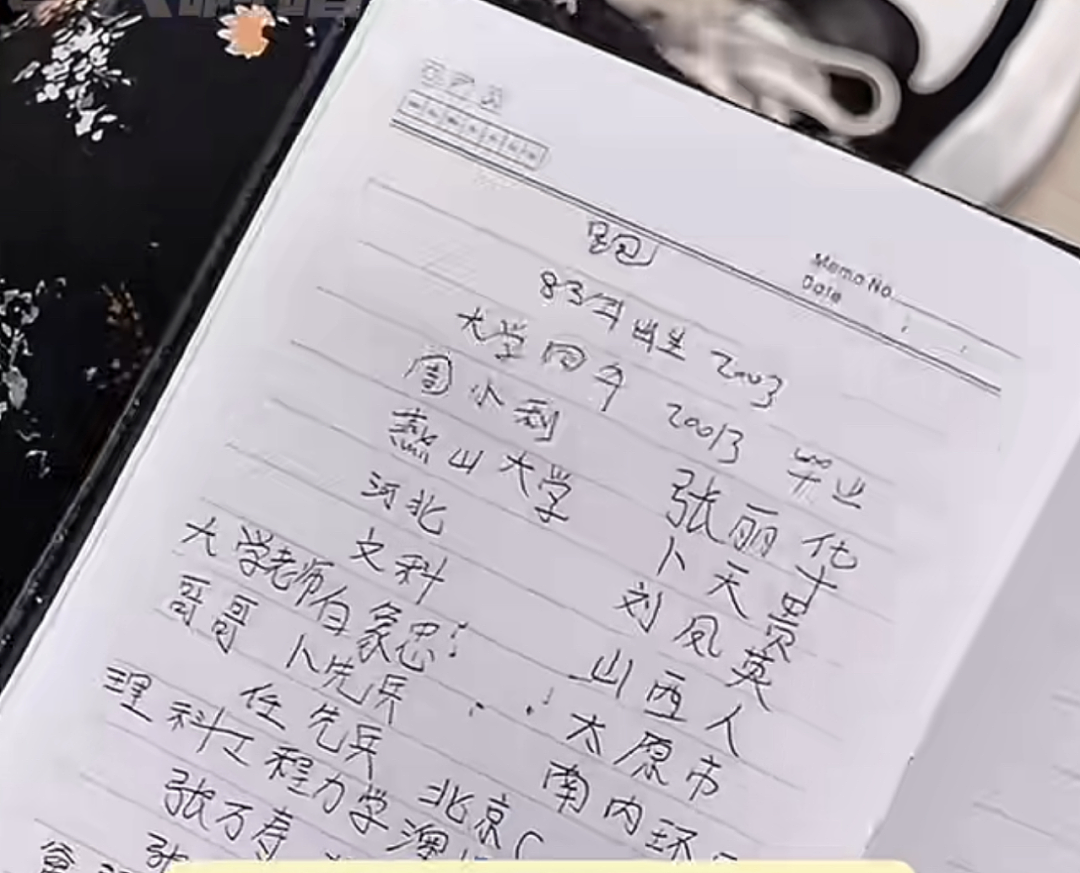 Memo No.
Date
跑
83年出生 2003
大学四年 20013 毕业
周小利 张丽华
燕山大学 卜天贵
河北 刘凤英
文科 山西人
大学老师白象忠: 太原市
哥哥 卜先兵 南内环
任先兵
理科工程力学 北京
张万寿 澳
张